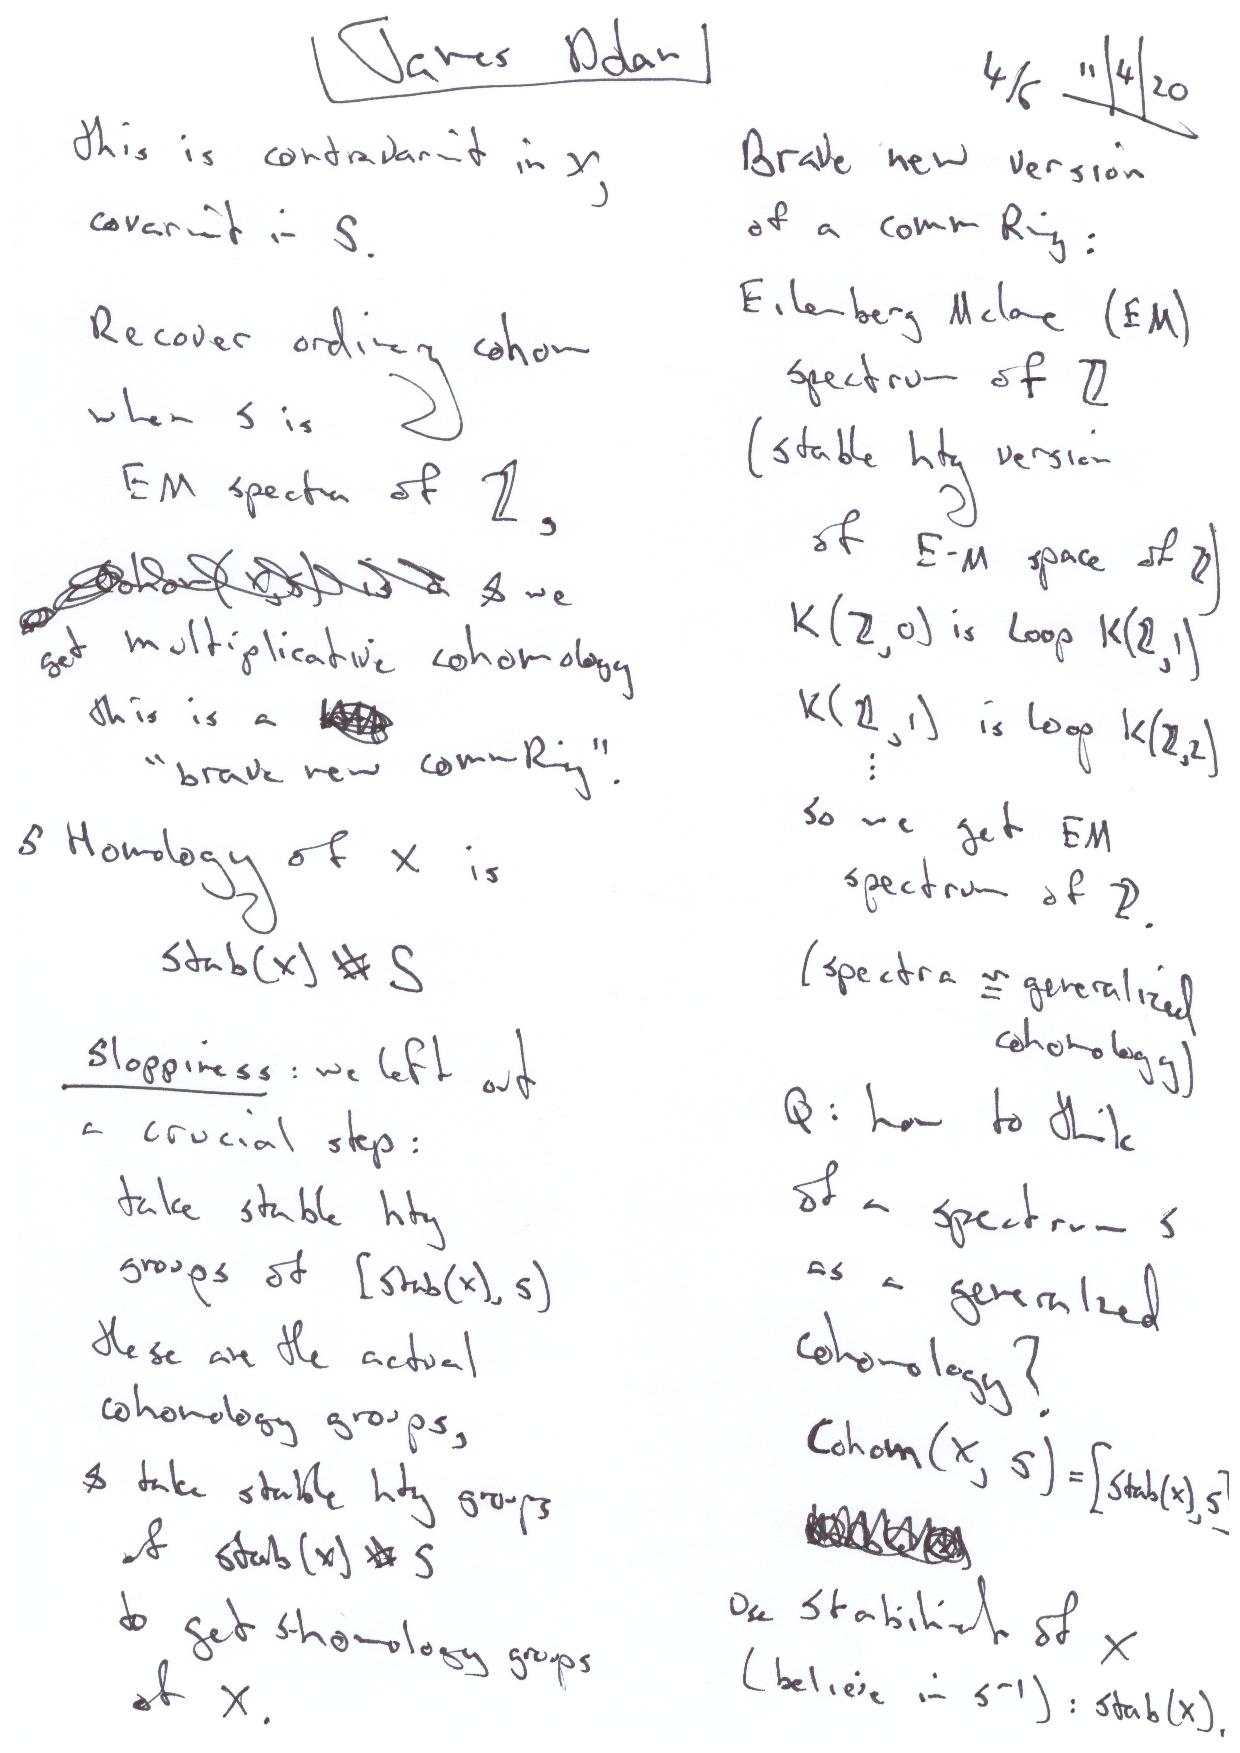 James Dolan
4/6 11/4/20
this is contravariant in X,
covariant in S.
Recover ordinary cohom
when S is
EM spectra of ℤ,
& we
get multiplicative cohomology
this is a
"brave new commRing".
S Homology of X is
stab(X) ⊗ S
Sloppiness: we left out
a crucial step:
take stable hty
groups of [stab(X), S]
these are the actual
cohomology groups,
& take stable hty groups
of stab(X) ⊗ S
to get S-homology groups
of X.
Brave new version
of a comm Ring:
Eilenberg Mclane (EM)
spectrum of ℤ
(stable hty version
of E-M space of ℤ)
K(ℤ,0) is Loop K(ℤ,1)
K(ℤ,1) is loop K(ℤ,2)
⋮
so we get EM
spectrum of ℤ.
(spectra ≅ generalized
cohomology)
Q: how to think
of a spectrum S
as a generalized
cohomology?
Cohom(X, S) = [stab(X), S]
Use stabiliz'n of X
(believe in S⁻¹): stab(X).